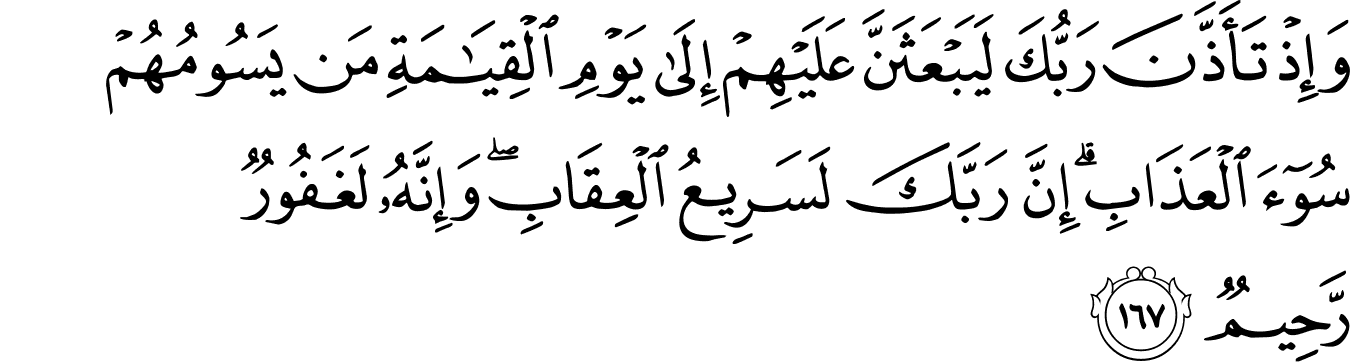 وَإِذْ تَأَذَّنَ رَبُّكَ لَيَبْعَثَنَّ عَلَيْهِمْ إِلَىٰ يَوْمِ ٱلْقِيَـٰمَةِ مَن يَسُومُهُمْ
سُوٓءَ ٱلْعَذَابِ ۗ إِنَّ رَبَّكَ لَسَرِيعُ ٱلْعِقَابِ ۖ وَإِنَّهُۥ لَغَفُورٌ
رَّحِيمٌ ١٦٧